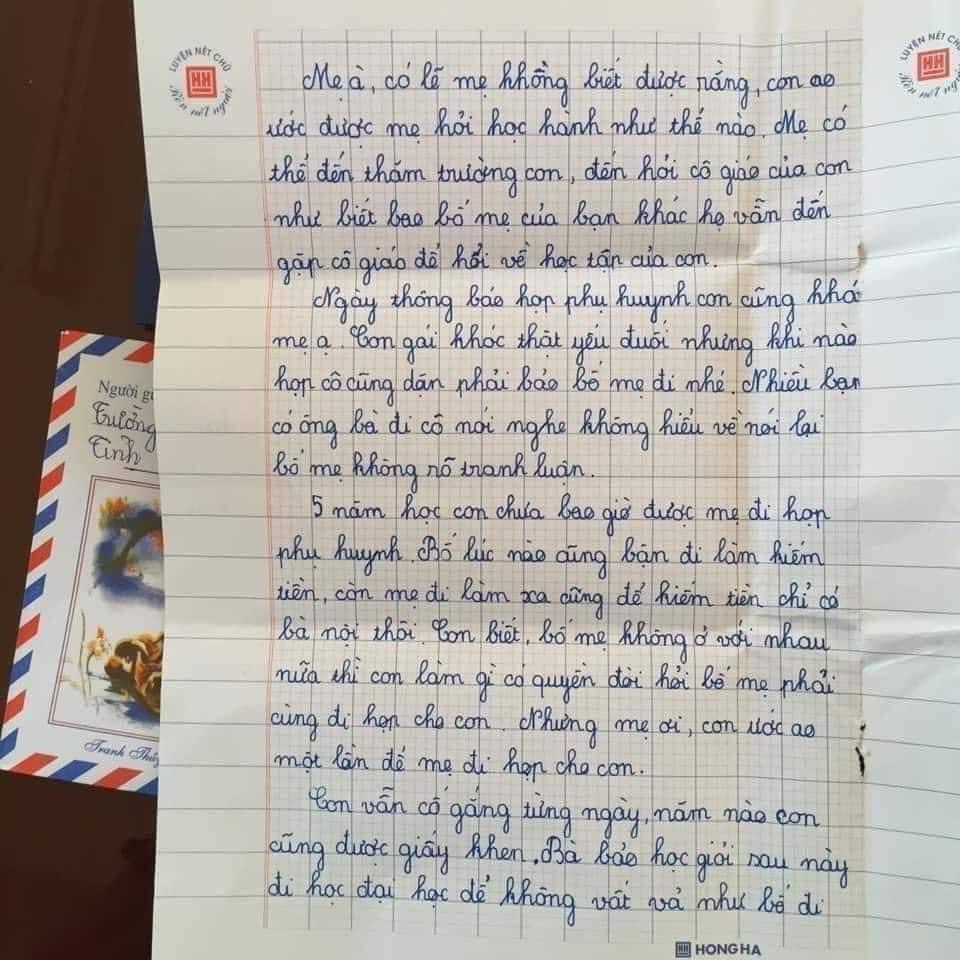 LUYỆN NÉT CHỮ
Rèn nết người
LUYỆN NÉT CHỮ
Rèn nết người
Mẹ à, có lẽ mẹ không biết được rằng, con ao
ước được mẹ hỏi học hành như thế nào. Mẹ có
thể đến thăm trường con, đến hỏi cô giáo của con
như biết bao bố mẹ của bạn khác họ vẫn đến
gặp cô giáo để hỏi về học tập của con.
Ngày thông báo họp phụ huynh con cũng khó
mẹ ạ. Con gái khóc thật yếu đuối nhưng khi nào
họp cô cũng dặn phải bảo bố mẹ đi nhé. Nhiều bạn
có ông bà đi cô nói nghe không hiểu về nói lại
bố mẹ không rõ tranh luận.
5 năm học con chưa bao giờ được mẹ đi họp
phụ huynh. Bố lúc nào cũng bận đi làm kiếm
tiền, còn mẹ đi làm xa cũng để kiếm tiền chỉ có
bà nội thôi. Con biết, bố mẹ không ở với nhau
nữa thì con làm gì có quyền đòi hỏi bố mẹ phải
cùng đi họp cho con. Nhưng mẹ ơi, con ước ao
một lần để mẹ đi họp cho con.
Con vẫn cố gắng từng ngày, năm nào con
cũng được giấy khen. Bà bảo học giỏi sau này
đi học đại học để không vất vả như bố đi
HONG HA
Người gử
Trường
Tỉnh
Tranh Thủy